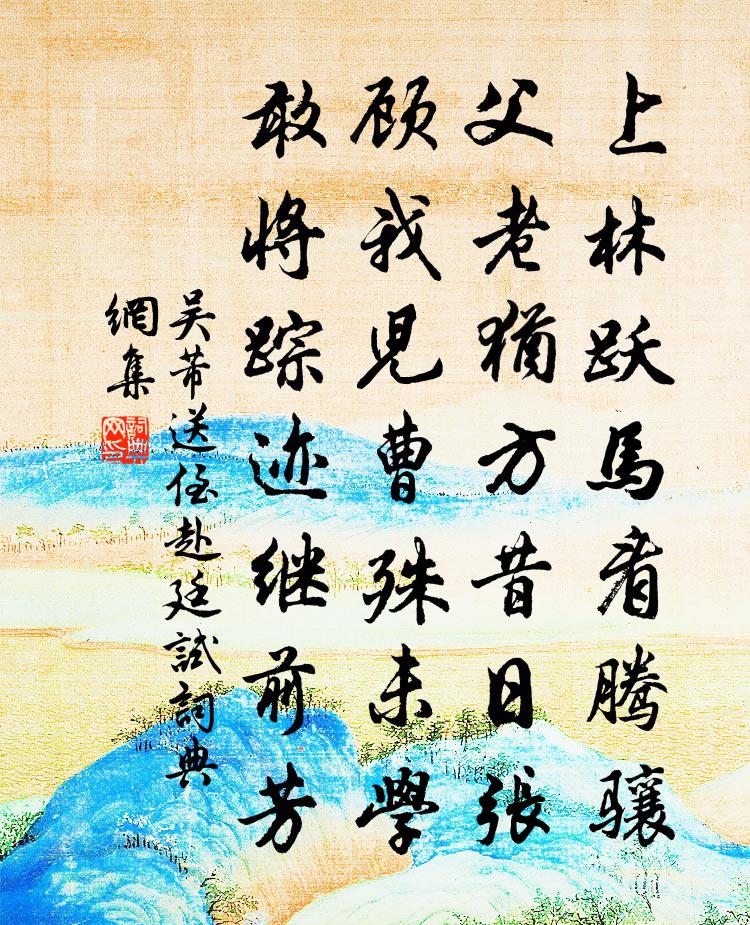 上林跃馬看腾骧
父老犹方昔日張
顾我児曹殊未學
敢将踪迹继前芳
吴芾送侄赴廷試詞典
網集
詞典網